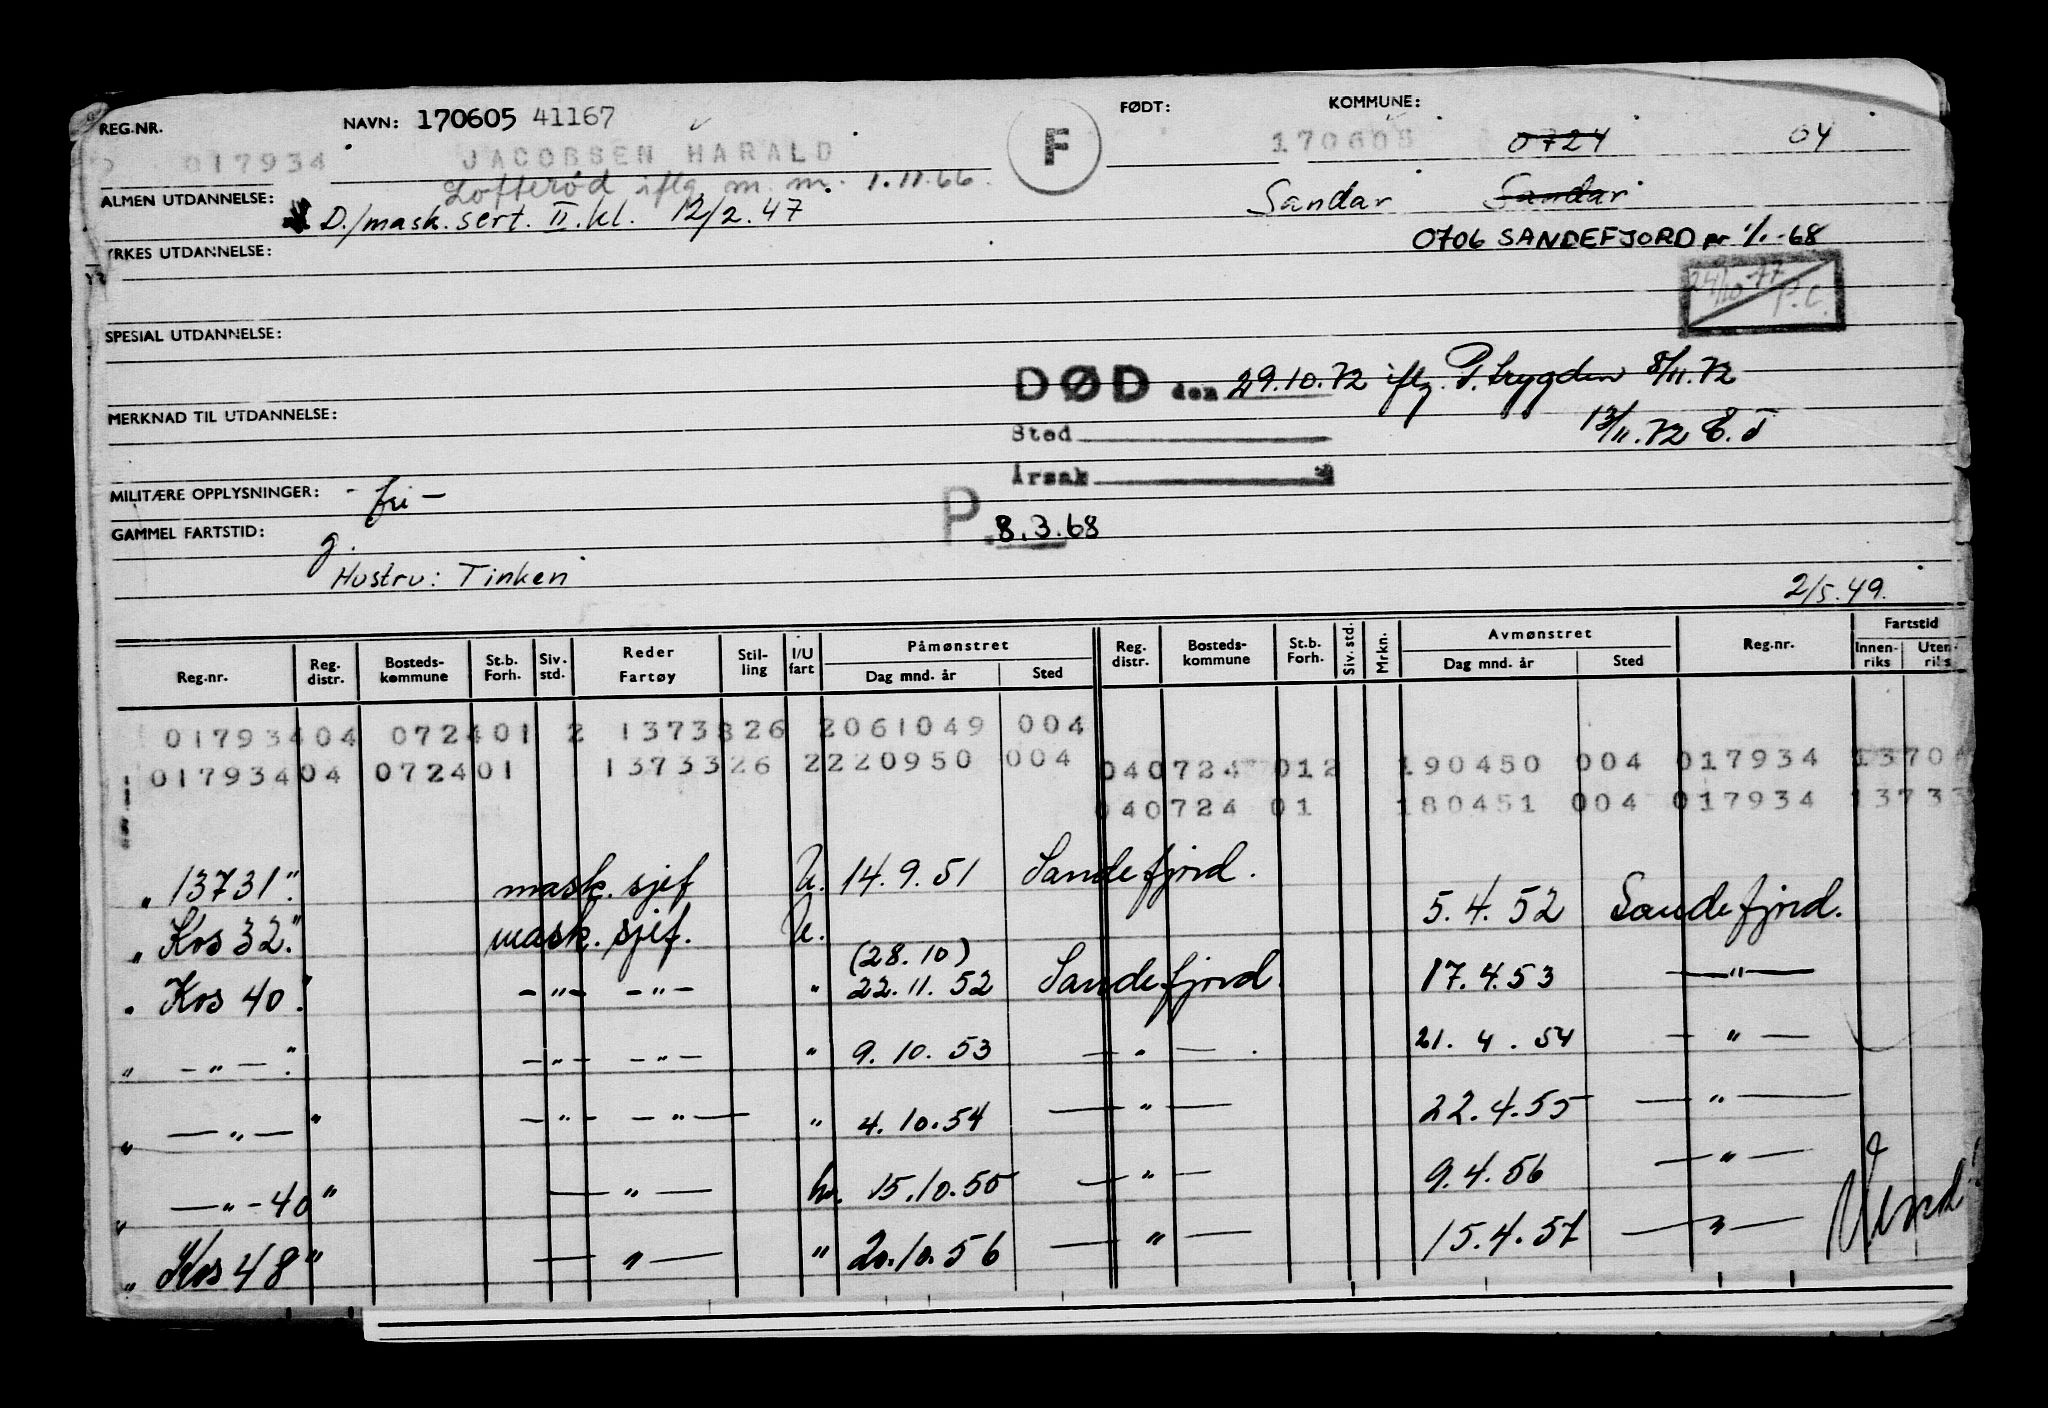 REG.NR. NAVN: 170605 41167 F FØDT: KOMMUNE:
017934 JACOBSEN HARALD 170605 0724 04
Lofterød iflg m. m. 1.11.66. Sandar Sandar
ALMEN UTDANNELSE: D./mask. sert. II. kl. 12/2.47
0706 SANDEFJORD pr 1/1-68
YRKES UTDANNELSE:
24/10 77 P.C.
SPESIAL UTDANNELSE:
DØD den 29.10.72 iflg. P. trygden 8/11.72
MERKNAD TIL UTDANNELSE:
Sted 13/11.72 E.T
Årsak
MILITÆRE OPPLYSNINGER: - fri -
GAMMEL FARTSTID: g. P. 8.3.68
Hustru: Tinken
2/5.49.
Reg.nr. Reg. distr. Bosteds- kommune St.b. Forh. Siv. std. Reder Fartøy Stil- ling I/U fart Påmønstret Dag mnd. år Sted Reg. distr. Bosteds- kommune St.b. Forh. Siv. std. Mrkn. Avmønstret Dag mnd. år Sted Reg.nr. Fartstid Innen- riks Uten- riks
01793404 072401 2 1373326 2061049 004
01793404 072401 1373326 2220950 004 040724 012 190450 004 017934 13704
040724 01 180451 004 017934 13733
„ 13731". mask. sjef U. 14.9.51 Sandefjord. 5.4.52 Sandefjord.
„ Kos 32." mask. sjef. U.
(28.10)
„ Kos 40." -"- -"- " 22.11.52 Sandefjord. 17.4.53 -"-
„ -"-." -"- -"- " 9.10.53 -"- . 21.4.54 -"-
„ -"- " -"- -"- " 4.10.54 -"- 22.4.55 -"-
„ -"-40" -"- 15.10.55 -"- 9.4.56 -"-
„ Kos 48" -"- " 20.10.56 -"- 15.4.57 -"- Vend!